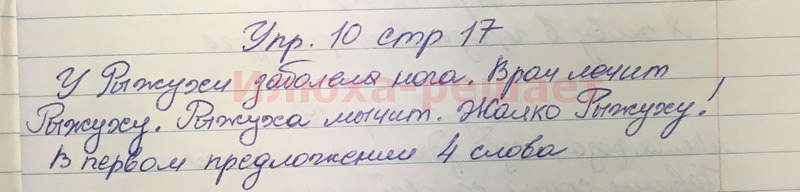 Упр. 10 стр 17
У Рыжухи заболела нога. Врач лечит
Рыжуху. Рыжуха мычит. Жалко Рыжуху!
В первом предложении 4 слова
Илюха-решает